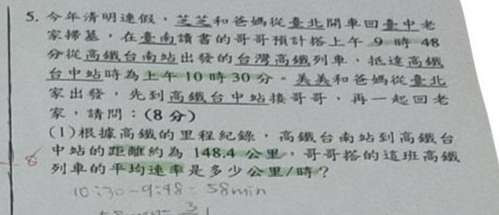 5. 今年清明連假，芝芝和爸媽從臺北開車回臺中老
家掃墓，在臺南讀書的哥哥預計搭上午 9 時 48
分從高鐵台南站出發的台灣高鐵列車，抵達高鐵
台中站時為上午 10 時 30 分。美美和爸媽從臺北
家出發，先到高鐵台中站接哥哥，再一起回老
家，請問：(8 分)
(1)根據高鐵的里程紀錄，高鐵台南站到高鐵台
中站的距離約為 148.4 公里，哥哥搭的這班高鐵
列車的平均速率是多少公里/時？
10:30-9:48=58min